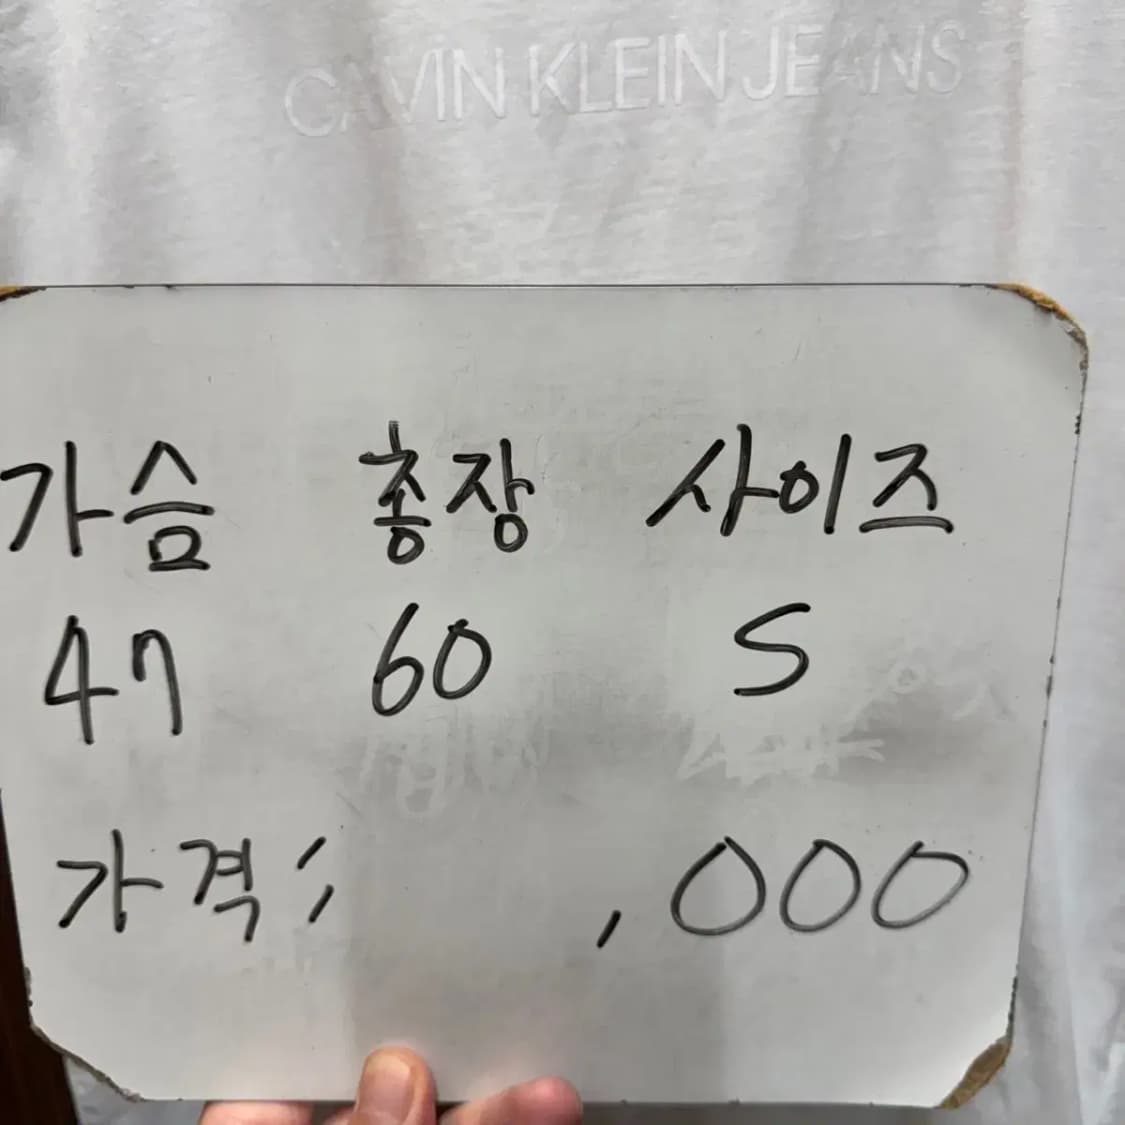 CALVIN KLEIN JEANS
가슴 총장 사이즈
47 60 S
가격: ,000